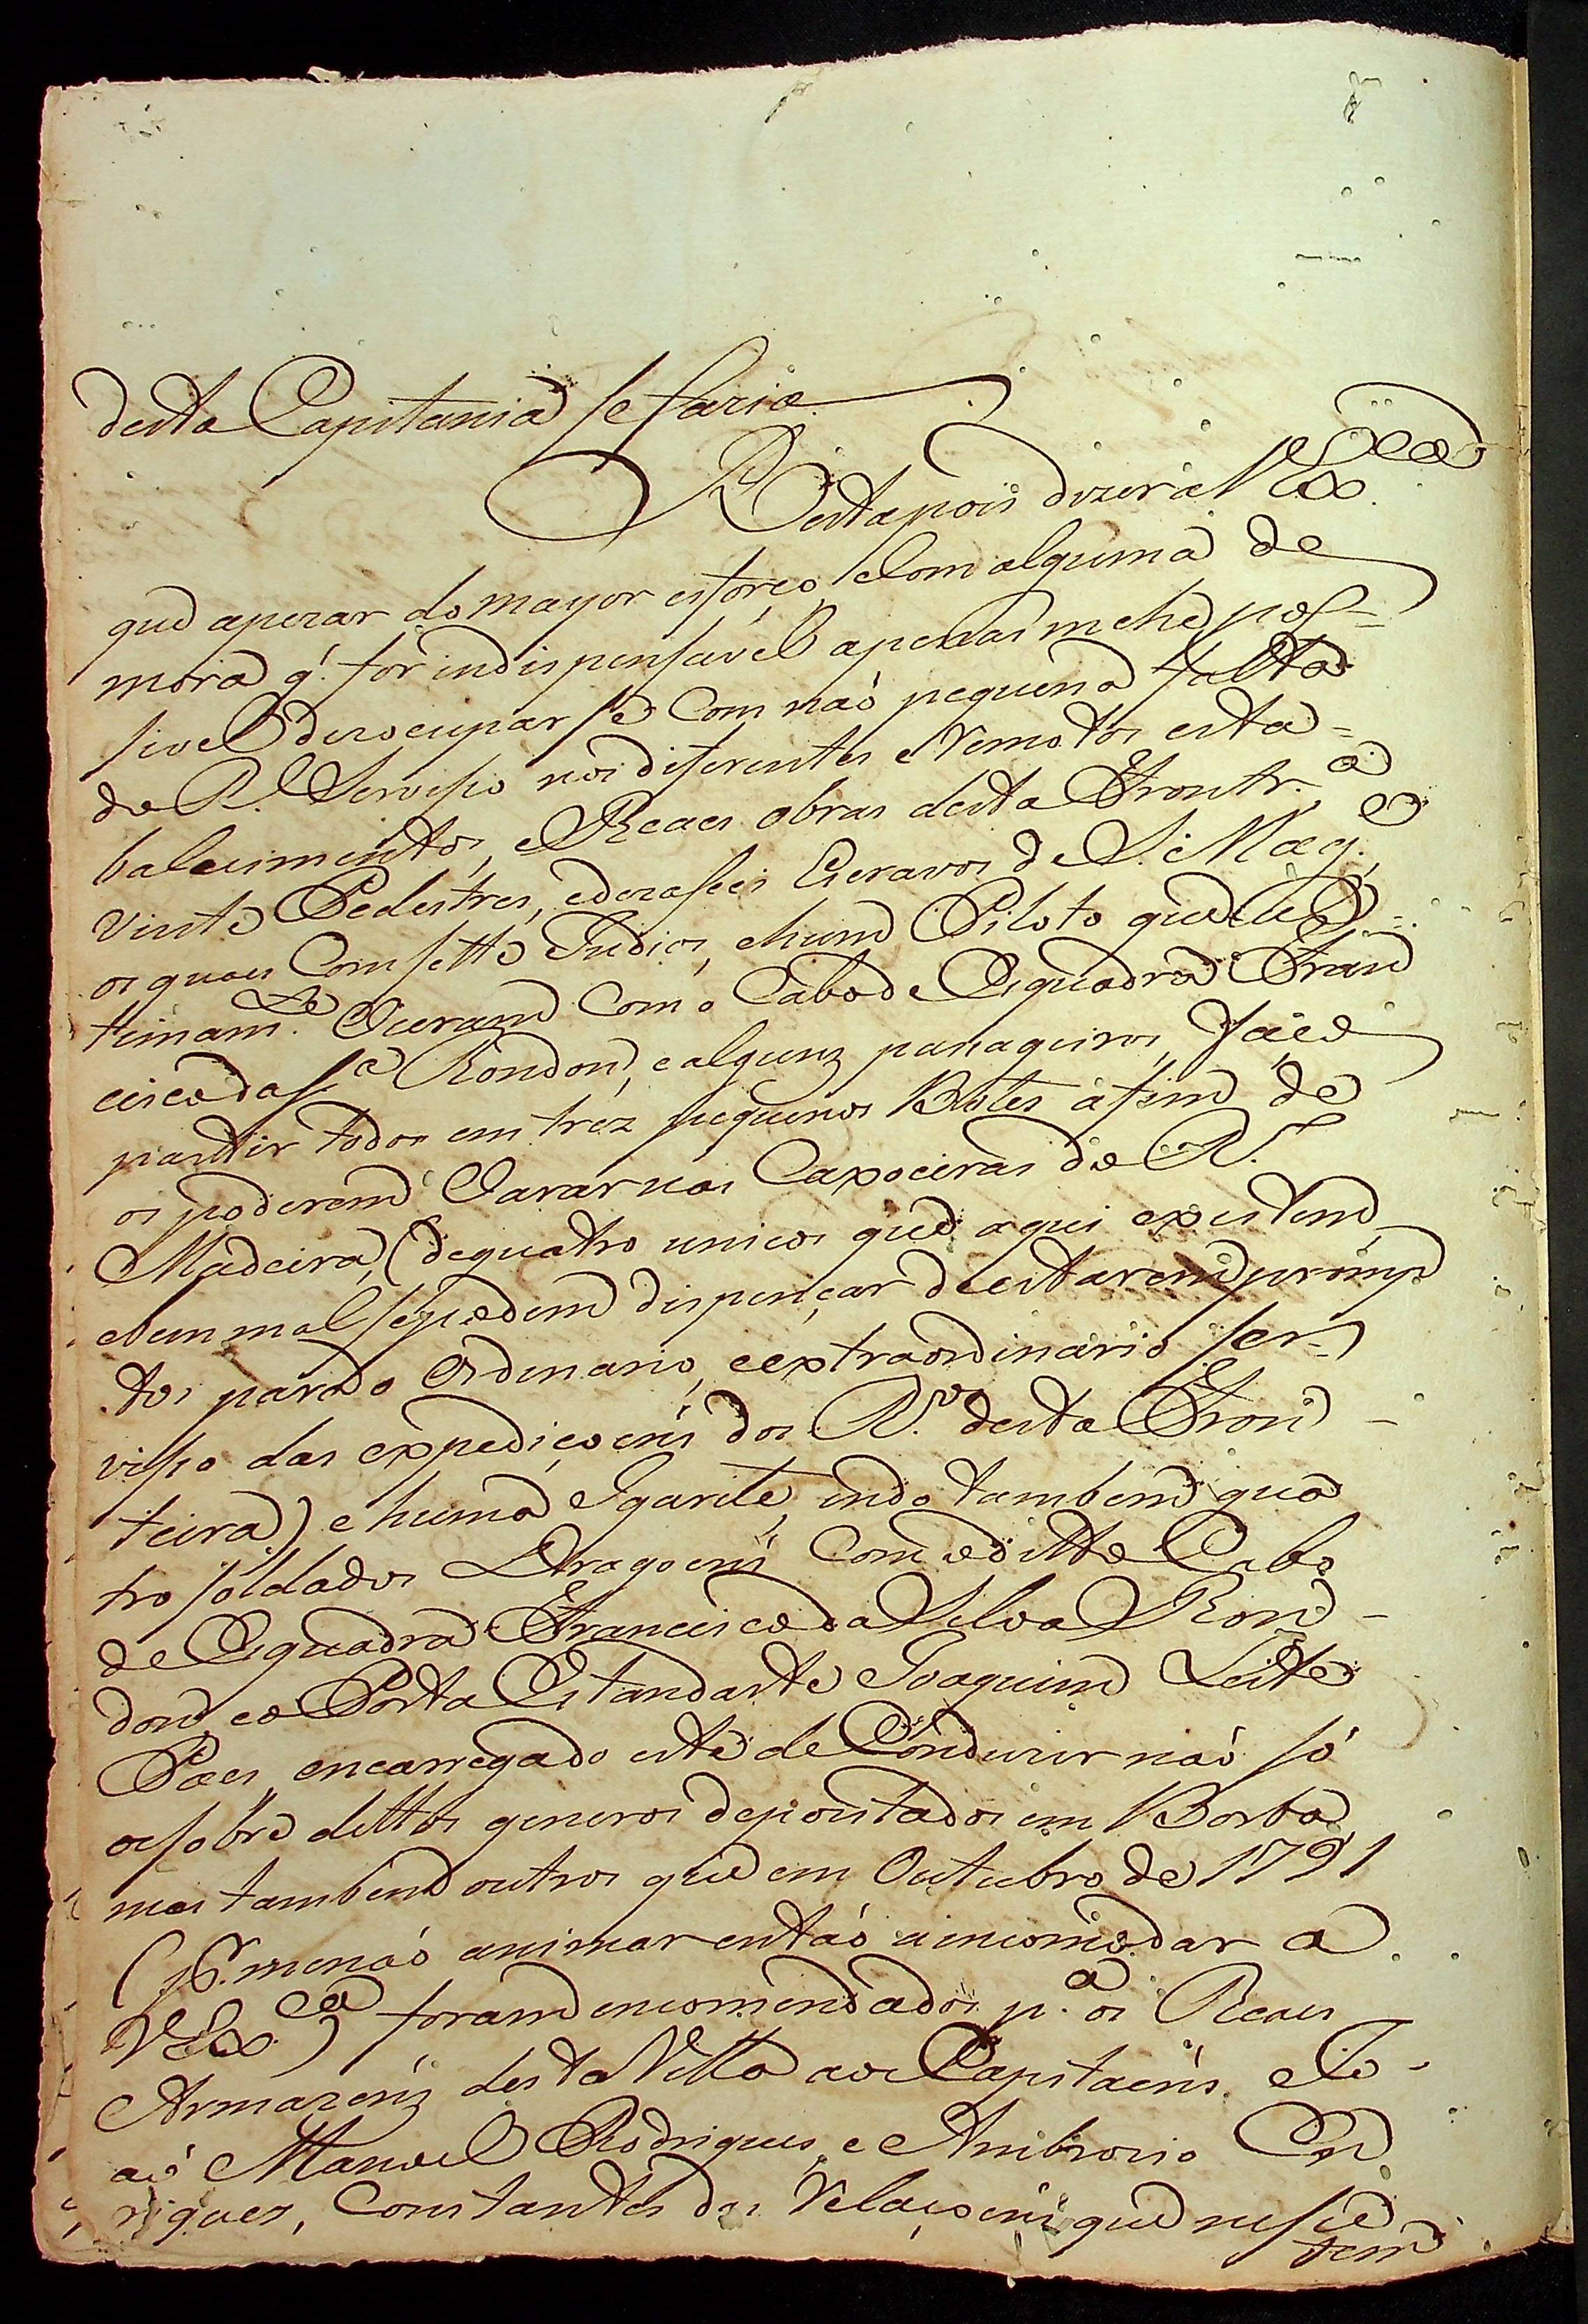 desta Capitania se faria.
Resta pois dizer a V Ex.ª
que apezar do mayor esforço, e com alguma de
mora q.' for indispensavel apenas me he pos-
sivel dezocupar se com naõ pequena falta
do R.l Serviso nos diferentes e remotos esta-
balecimentos, e Reaes obras desta Frontr.ª
vinte Pedestres, e dezaseis Escravos de S. Mag.e,
os quaes com sette Indios, e hum Piloto que ul-
timam.te vieraõ com o Cabo de Esquadra Fran
cisco da S.ª Rondon, e alguns passageiros, faço
partir todos em trez pequenos Botes afim de
os poderem varar nas Caxoeiras do R.º
Madeira, (de quatro unicos que aqui existem,
e bem mal se podem dispençar de estarem promp
tos para o Ordinario, e extraordinario ser-
viso das expediçoens dos R.os desta Fron-
teira) e huma Igarite, indo tambem qua
tro soldados Dragoens com o ditto Cabo
de Esquadra Francisco da Silva Ron-
don, e o Porta Estandarte Joaquim Leite
Paes, encarregado este de Conduzir naõ só
os sobre dittos generos depozitados em Borba,
mas tambem outros que em Outubro de 1791
(p.r me naõ animar entaõ a incomodar a
V Ex.ª) foram encomendados p.ª os Reaes
Armazens desta Villa aos Capitaens Jo-
aõ Manoel Rodrigues, e Ambrozio En
riques, Constantes das relaçoens que nesse
tem